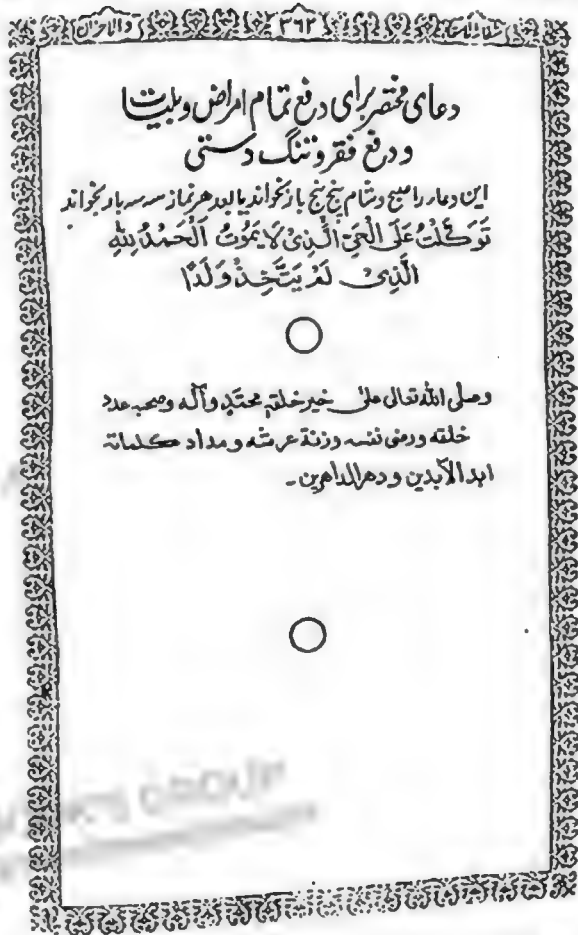 شفاء الاسقام ۳۶۲ والاحزان
دعای مختصر برای دفع تمام امراض و بلیات
و دفع فقر و تنگ دستی
این دعاء را صبح و شام پنج پنج بار بخواند یا بعد هر نماز سه سه بار بخواند
تَوَكَّلْتُ عَلَى الْحَيِّ الَّذِیْ لَا يَمُوْتُ اَلْحَمْدُ لِلّٰهِ
الَّذِیْ لَمْ يَتَّخِذْ وَلَدًا
وصلی الله تعالی علی خیر خلقه محمّدٍ وآله وصحبه عدد
خلقه ورضی نفسه وزنة عرشه ومداد کلماته
ابد الآبدین و دهر الداهرین ۔